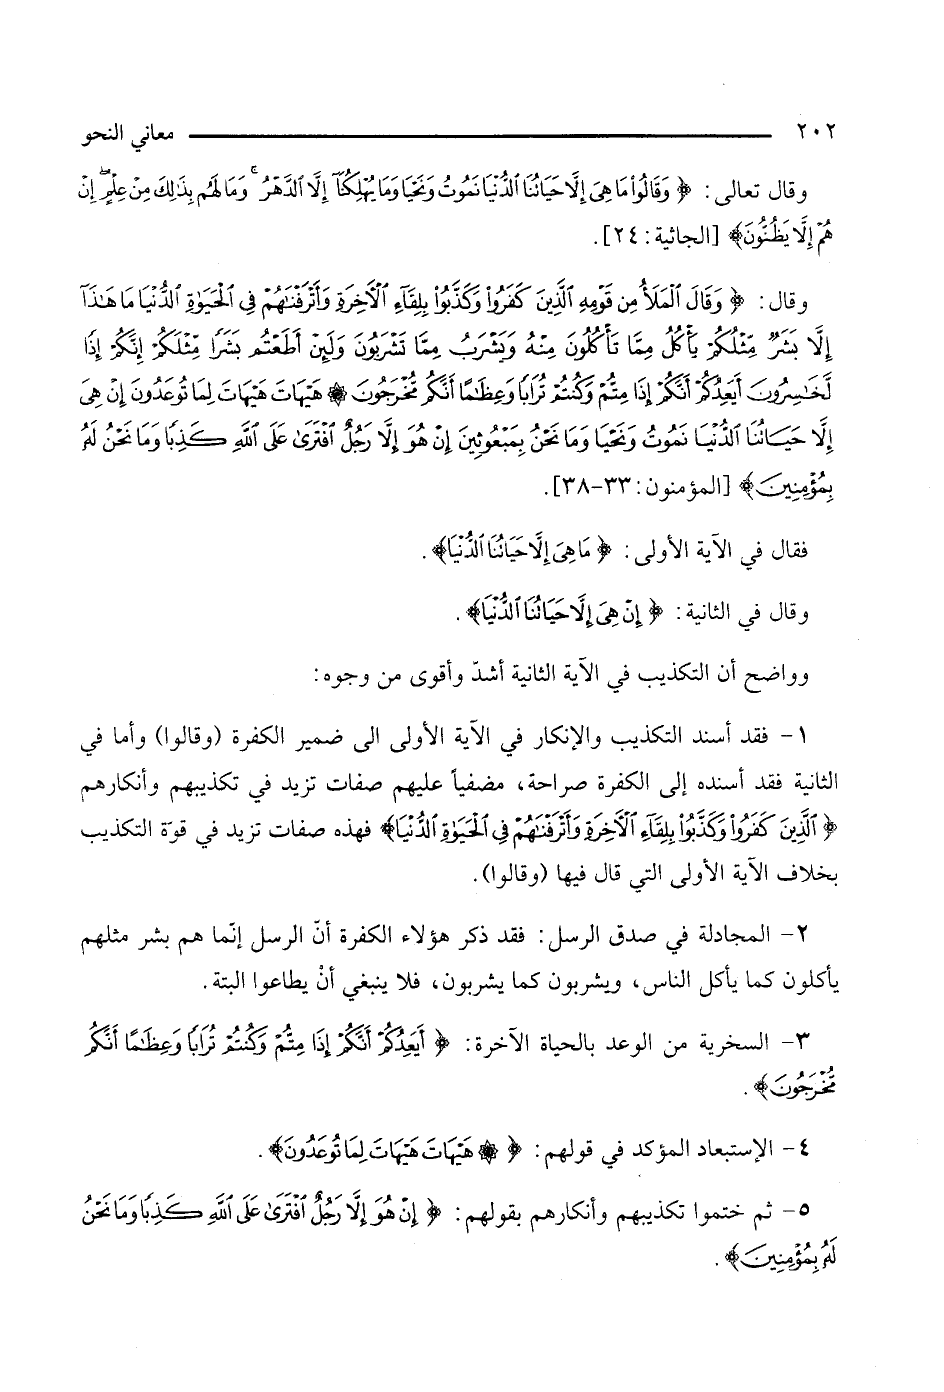 ٢٠٢ معاني النحو
وقال تعالى: ﴿ وَقَالُوا۟ مَا هِىَ إِلَّا حَيَاتُنَا ٱلدُّنْيَا نَمُوتُ وَنَحْيَا وَمَا يُهْلِكُنَآ إِلَّا ٱلدَّهْرُ ۚ وَمَا لَهُم بِذَٰلِكَ مِنْ عِلْمٍ ۖ إِنْ
هُمْ إِلَّا يَظُنُّونَ﴾ [الجاثية: ٢٤].
وقال: ﴿ وَقَالَ ٱلْمَلَأُ مِن قَوْمِهِ ٱلَّذِينَ كَفَرُوا۟ وَكَذَّبُوا۟ بِلِقَآءِ ٱلْأَخِرَةِ وَأَتْرَفْنَٰهُمْ فِى ٱلْحَيَوٰةِ ٱلدُّنْيَا مَا هَٰذَآ
إِلَّا بَشَرٌ مِّثْلُكُمْ يَأْكُلُ مِمَّا تَأْكُلُونَ مِنْهُ وَيَشْرَبُ مِمَّا تَشْرَبُونَ وَلَئِنْ أَطَعْتُم بَشَرًا مِّثْلَكُمْ إِنَّكُمْ إِذًا
لَّخَٰسِرُونَ أَيَعِدُكُمْ أَنَّكُمْ إِذَا مِتُّمْ وَكُنتُمْ تُرَابًا وَعِظَٰمًا أَنَّكُم مُّخْرَجُونَ ۞ هَيْهَاتَ هَيْهَاتَ لِمَا تُوعَدُونَ إِنْ هِىَ
إِلَّا حَيَاتُنَا ٱلدُّنْيَا نَمُوتُ وَنَحْيَا وَمَا نَحْنُ بِمَبْعُوثِينَ إِنْ هُوَ إِلَّا رَجُلٌ ٱفْتَرَىٰ عَلَى ٱللَّهِ كَذِبًا وَمَا نَحْنُ لَهُۥ
بِمُؤْمِنِينَ﴾ [المؤمنون: ٣٣-٣٨].
فقال في الآية الأولى: ﴿ مَا هِىَ إِلَّا حَيَاتُنَا ٱلدُّنْيَا﴾.
وقال في الثانية: ﴿ إِنْ هِىَ إِلَّا حَيَاتُنَا ٱلدُّنْيَا﴾.
وواضح أن التكذيب في الآية الثانية أشدّ وأقوى من وجوه:
١- فقد أسند التكذيب والإنكار في الآية الأولى الى ضمير الكفرة (وقالوا) وأما في
الثانية فقد أسنده إلى الكفرة صراحة، مضفياً عليهم صفات تزيد في تكذيبهم وأنكارهم
﴿ ٱلَّذِينَ كَفَرُوا۟ وَكَذَّبُوا۟ بِلِقَآءِ ٱلْأَخِرَةِ وَأَتْرَفْنَٰهُمْ فِى ٱلْحَيَوٰةِ ٱلدُّنْيَا﴾ فهذه صفات تزيد في قوّة التكذيب
بخلاف الآية الأولى التي قال فيها (وقالوا).
٢- المجادلة في صدق الرسل: فقد ذكر هؤلاء الكفرة أنّ الرسل إنّما هم بشر مثلهم
يأكلون كما يأكل الناس، ويشربون كما يشربون، فلا ينبغي أنْ يطاعوا البتة.
٣- السخرية من الوعد بالحياة الآخرة: ﴿ أَيَعِدُكُمْ أَنَّكُمْ إِذَا مِتُّمْ وَكُنتُمْ تُرَابًا وَعِظَٰمًا أَنَّكُم
مُّخْرَجُونَ﴾.
٤- الإستبعاد المؤكد في قولهم: ﴿ ۞ هَيْهَاتَ هَيْهَاتَ لِمَا تُوعَدُونَ﴾.
٥- ثم ختموا تكذيبهم وأنكارهم بقولهم: ﴿ إِنْ هُوَ إِلَّا رَجُلٌ ٱفْتَرَىٰ عَلَى ٱللَّهِ كَذِبًا وَمَا نَحْنُ
لَهُۥ بِمُؤْمِنِينَ﴾.